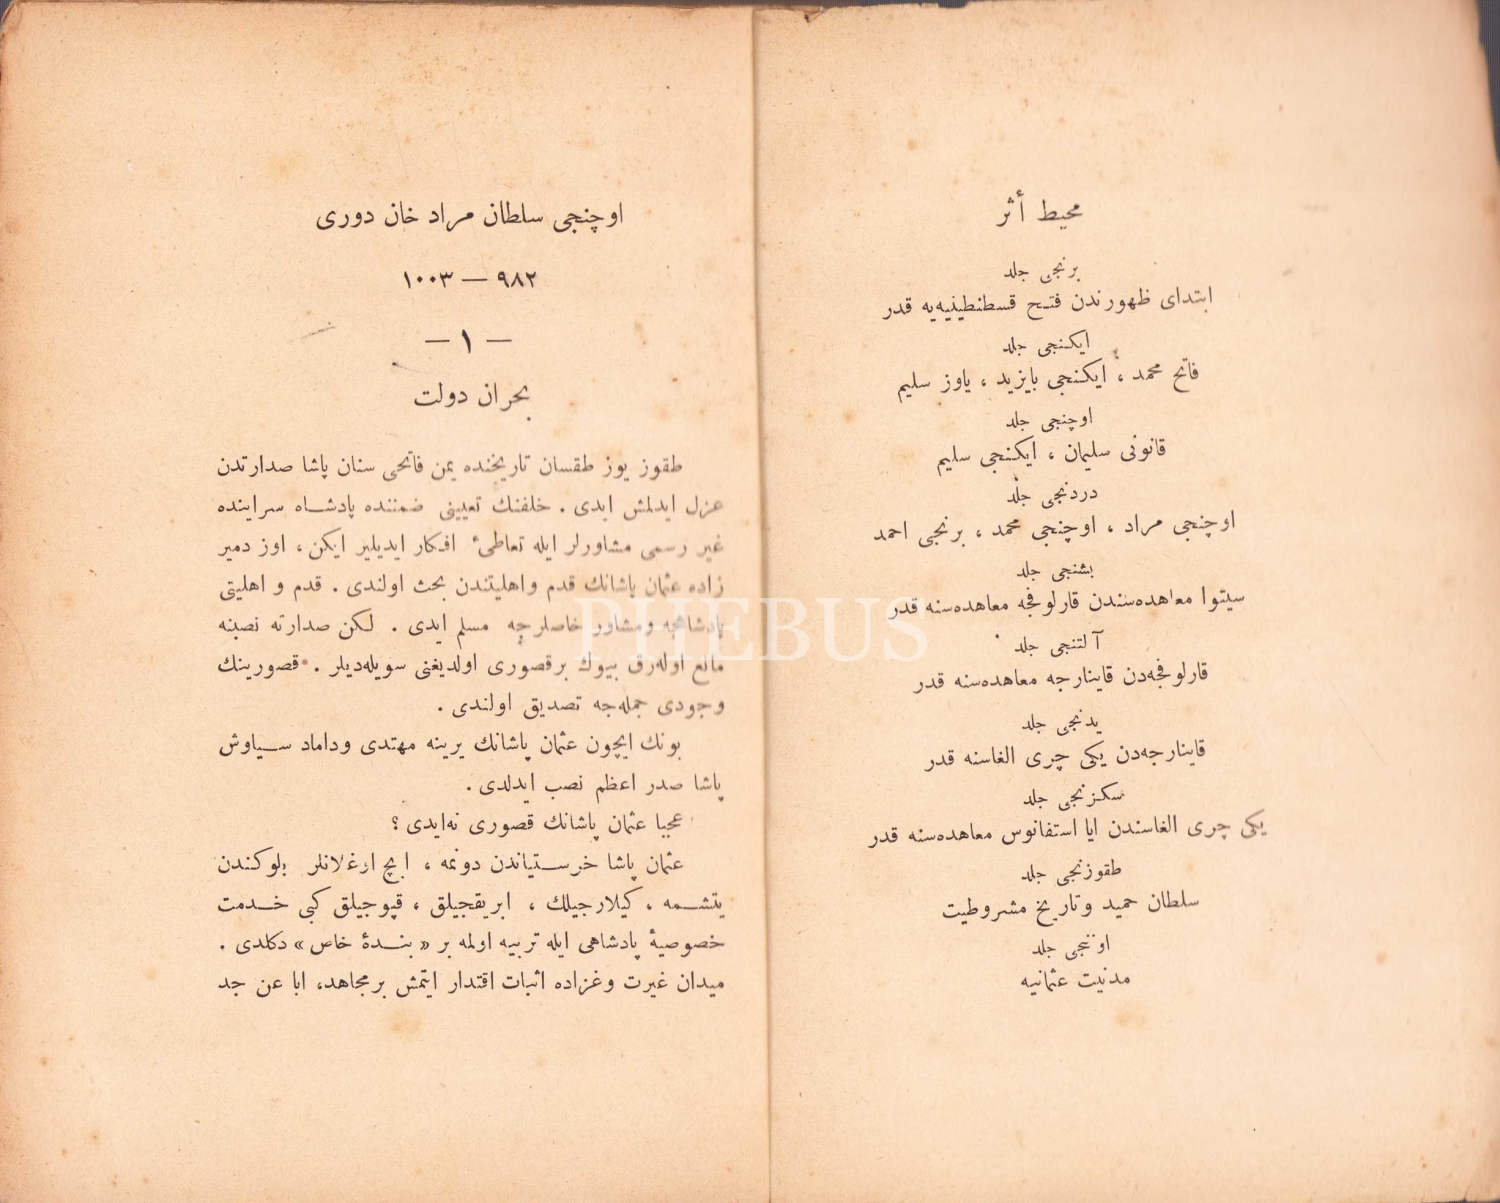 محيط أثر
برنجی جلد
ابتدای ظهورندن فتح قسطنطينيه‌يه قدر
ايكنجی جلد
فاتح محمد ، ايكنجی بايزيد ، ياوز سليم
اوچنجی جلد
قانونی سليمان ، ايكنجی سليم
دردنجی جلد
اوچنجی مراد ، اوچنجی محمد ، برنجی احمد
بشنجی جلد
سيتوا معاهده‌سندن قارلوفجه معاهده‌سنه قدر
آلتنجی جلد
قارلوفجه‌دن قاينارجه معاهده‌سنه قدر
يدنجی جلد
قاينارجه‌دن يكی چری الغاسنه قدر
سكزنجی جلد
يكی چری الغاسندن ايا استفانوس معاهده‌سنه قدر
طقوزنجی جلد
سلطان حميد وتاريخ مشروطيت
اوننجی جلد
مدنيت عثمانيه
اوچنجی سلطان مراد خان دوری
٩٨٢ — ١٠٠٣
— ١ —
بحران دولت
طقوز يوز طقسان تاريخنده يمن فاتحی سنان پاشا صدارتدن
عزل ايدلمش ايدی . خلفنك تعيينی ضمننده پادشاه سراينده
غير رسمی مشاورلر ايله تعاطیٔ افكار ايديلير ايكن ، اوز دمير
زاده عثمان پاشانك قدم واهليتندن بحث اولندی . قدم و اهليتی
پادشاهجه ومشاور خاصلرجه مسلم ايدی . لكن صدارته نصبنه
مانع اوله‌رق بيوك برقصوری اولديغنی سويله‌ديلر . قصورينك
وجودی جمله‌جه تصديق اولندی .
بونك ايچون عثمان پاشانك يرينه مهتدی وداماد سياوش
پاشا صدر اعظم نصب ايدلدی .
عجبا عثمان پاشانك قصوری نه‌ايدی ؟
عثمان پاشا خرستياندن دونمه ، ايچ اوغلانلر بلوكندن
يتشمه ، كيلارجيلك ، ابريقجيلق ، قپوجيلق كبی خدمت
خصوصيهٔ پادشاهی ايله تربيه اولمه بر « بندهٔ خاص » دكلدی .
ميدان غيرت وغزاده اثبات اقتدار ايتمش برمجاهد، ابا عن جد
PHEBUS